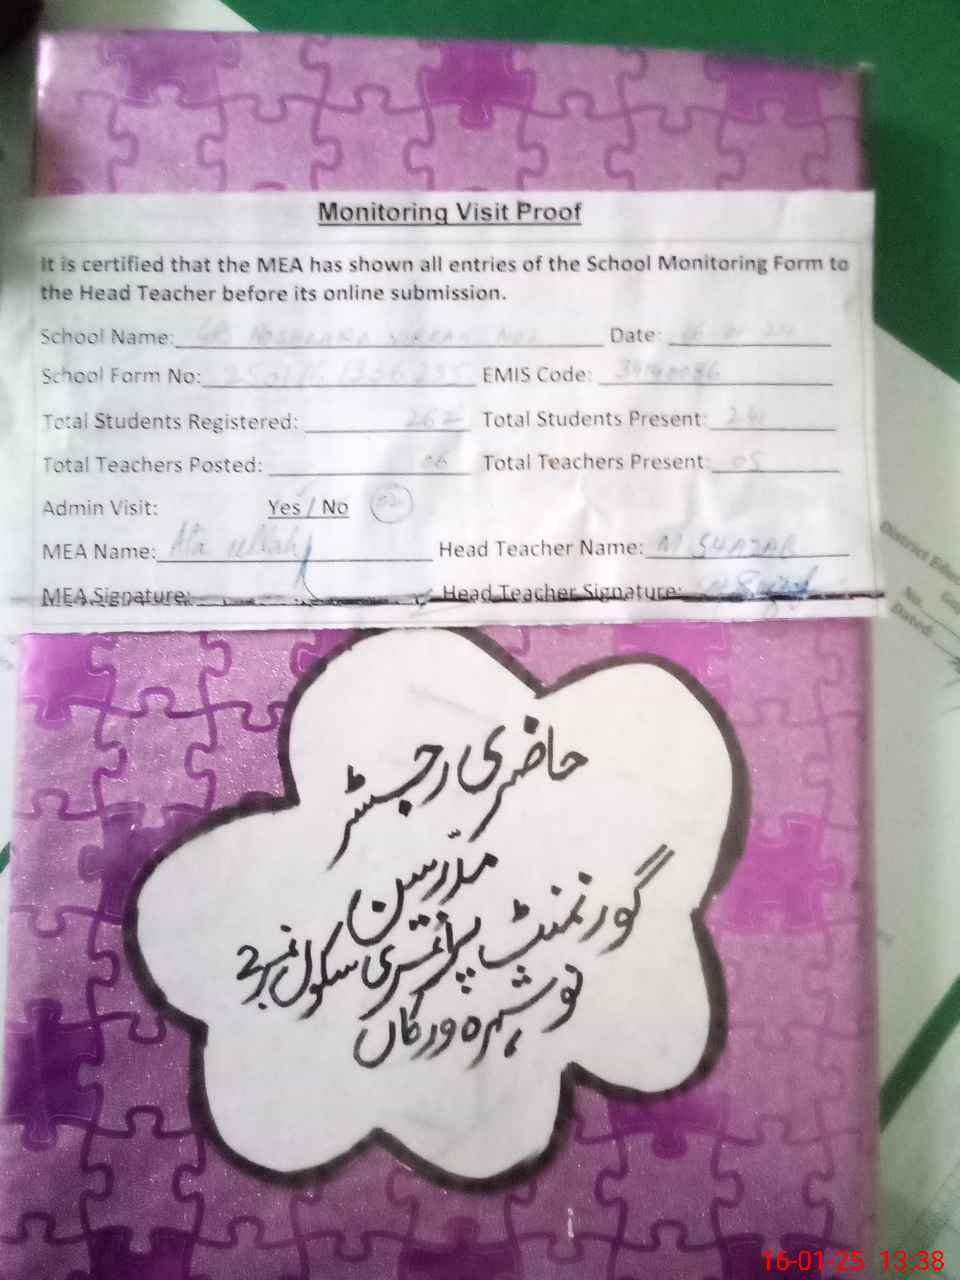 Monitoring Visit Proof
It is certified that the MEA has shown all entries of the School Monitoring Form to
the Head Teacher before its online submission.
School Name: GPS Noshehra Virkan No2 Date:
School Form No: EMIS Code:
Total Students Registered: 262 Total Students Present: 241
Total Teachers Posted: 06 Total Teachers Present: 05
Admin Visit: Yes / No 02
MEA Name: Ata ullah Head Teacher Name:
MEA Signature: Head Teacher Signature:
حاضری رجسٹر
مدرّسین
گورنمنٹ پرائمری سکول نمبر 2
نوشہرہ ورکاں
District Educ
No.
Dated:
16-01-25 13:38